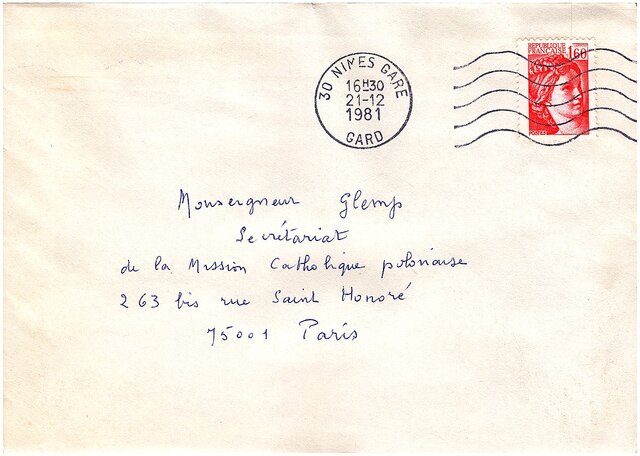 RÉPUBLIQUE
FRANÇAISE
1,60
POSTES
30 NIMES GARE
16H30
21-12
1981
GARD
Monseigneur Glemp
Secrétariat
de la Mission Catholique polonaise
263 bis rue Saint Honoré
75001 Paris